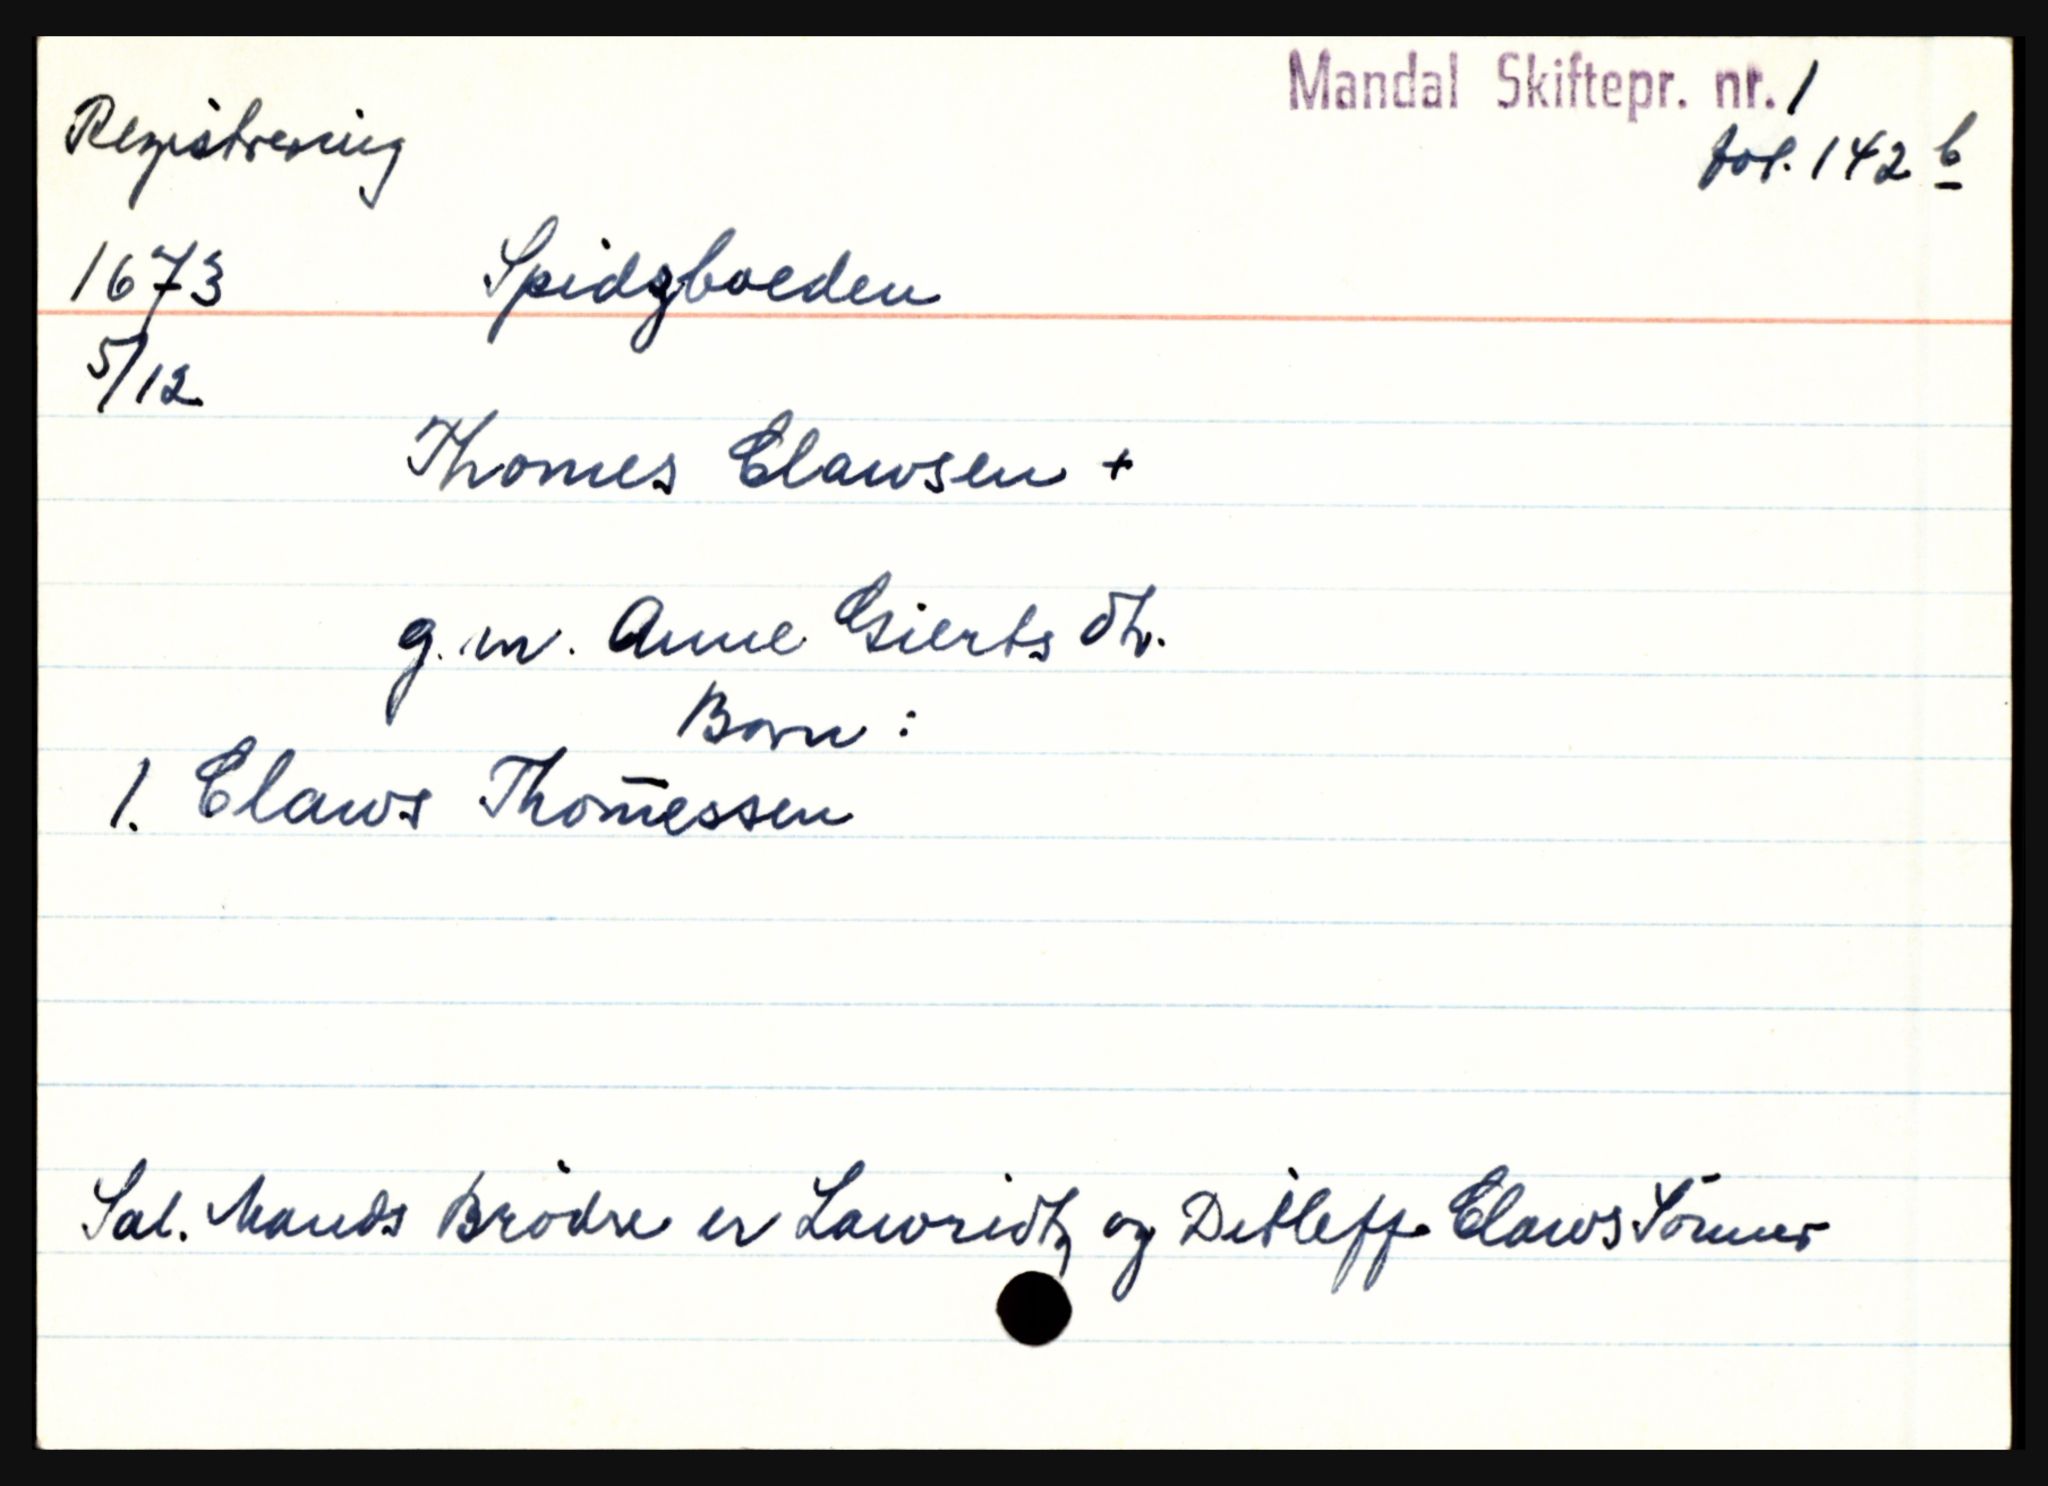 Mandal Skiftepr. nr. 1
Registrering
fol. 142 b
1673 Spidzboeden
5/12
Thomes Clawsen +
g. m. Anne Gierts dtr.
Born :
1. Claws Thom̄essen
Sal. Mands Brödre er Lawridtz og Ditleff Claws Sönner